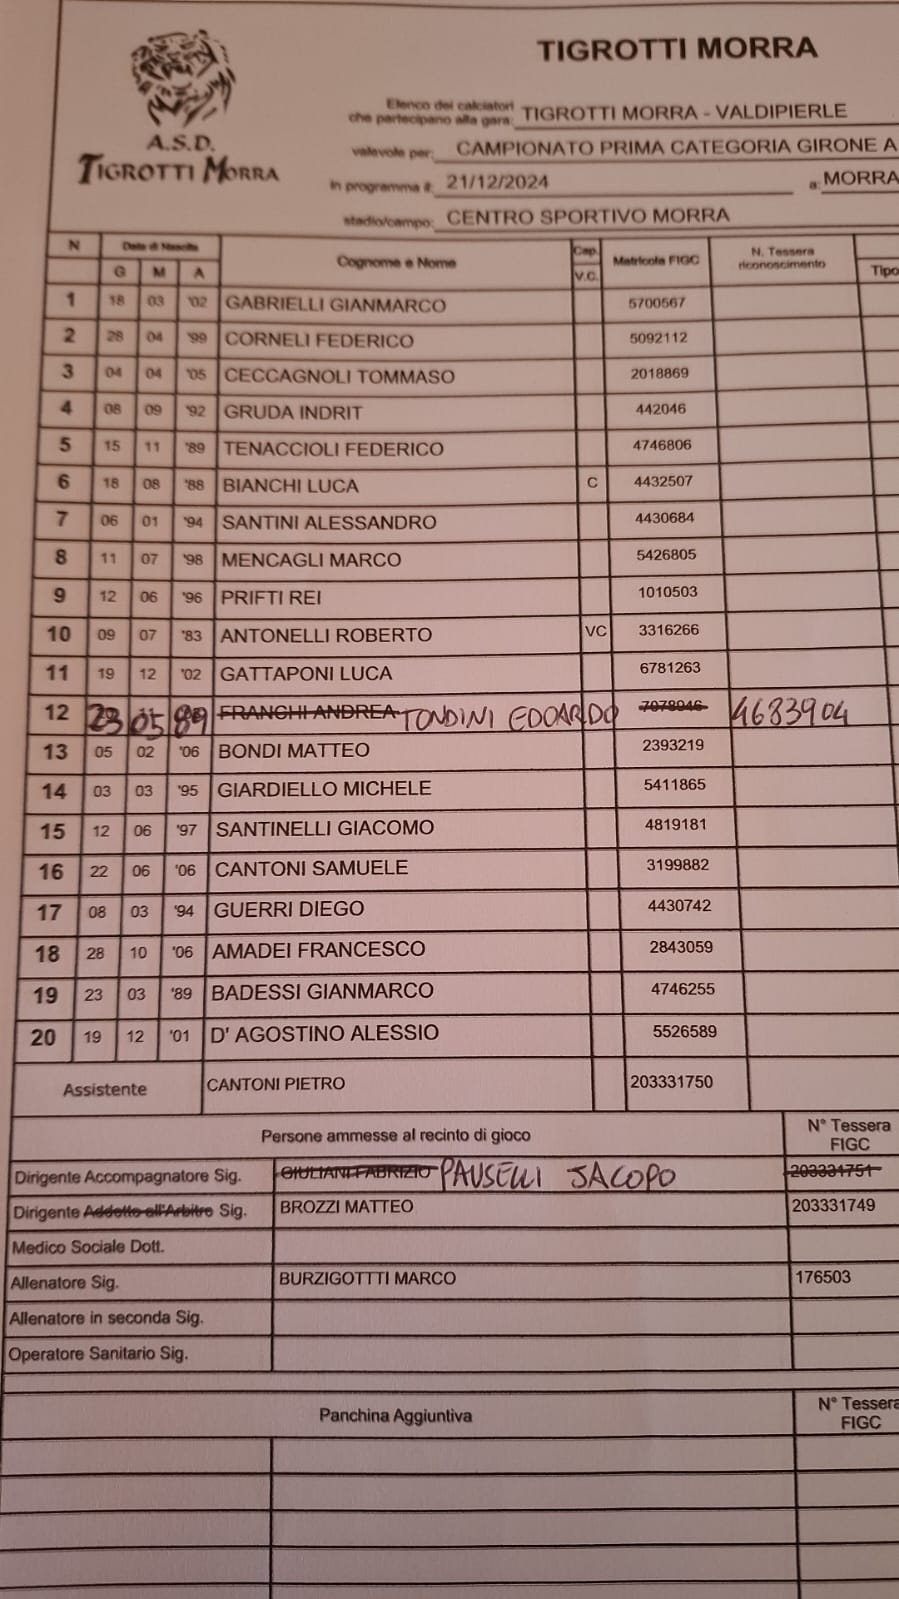 TIGROTTI MORRA
A.S.D.
TIGROTTI MORRA
Elenco dei calciatori
che partecipano alla gara: TIGROTTI MORRA - VALDIPIERLE
valevole per: CAMPIONATO PRIMA CATEGORIA GIRONE A
in programma il: 21/12/2024 a: MORRA
stadio/campo: CENTRO SPORTIVO MORRA
N Data di Nascita Cognome e Nome Cap. Matricola FIGC N. Tessera riconoscimento
G M A V.C. Tipo
1 18 03 '02 GABRIELLI GIANMARCO 5700567
2 28 04 '99 CORNELI FEDERICO 5092112
3 04 04 '05 CECCAGNOLI TOMMASO 2018869
4 08 09 '92 GRUDA INDRIT 442046
5 15 11 '89 TENACCIOLI FEDERICO 4746806
6 18 08 '88 BIANCHI LUCA C 4432507
7 06 01 '94 SANTINI ALESSANDRO 4430684
8 11 07 '98 MENCAGLI MARCO 5426805
9 12 06 '96 PRIFTI REI 1010503
10 09 07 '83 ANTONELLI ROBERTO VC 3316266
11 19 12 '02 GATTAPONI LUCA 6781263
12 23 05 89 FRANCHI ANDREA TONDINI EDOARDO 7078946 4683904
13 05 02 '06 BONDI MATTEO 2393219
14 03 03 '95 GIARDIELLO MICHELE 5411865
15 12 06 '97 SANTINELLI GIACOMO 4819181
16 22 06 '06 CANTONI SAMUELE 3199882
17 08 03 '94 GUERRI DIEGO 4430742
18 28 10 '06 AMADEI FRANCESCO 2843059
19 23 03 '89 BADESSI GIANMARCO 4746255
20 19 12 '01 D' AGOSTINO ALESSIO 5526589
Assistente CANTONI PIETRO 203331750
Persone ammesse al recinto di gioco N° Tessera FIGC
Dirigente Accompagnatore Sig. GIULIANI FABRIZIO PAUSELLI JACOPO 203331751
Dirigente Addetto all'Arbitro Sig. BROZZI MATTEO 203331749
Medico Sociale Dott.
Allenatore Sig. BURZIGOTTTI MARCO 176503
Allenatore in seconda Sig.
Operatore Sanitario Sig.
Panchina Aggiuntiva N° Tessera FIGC